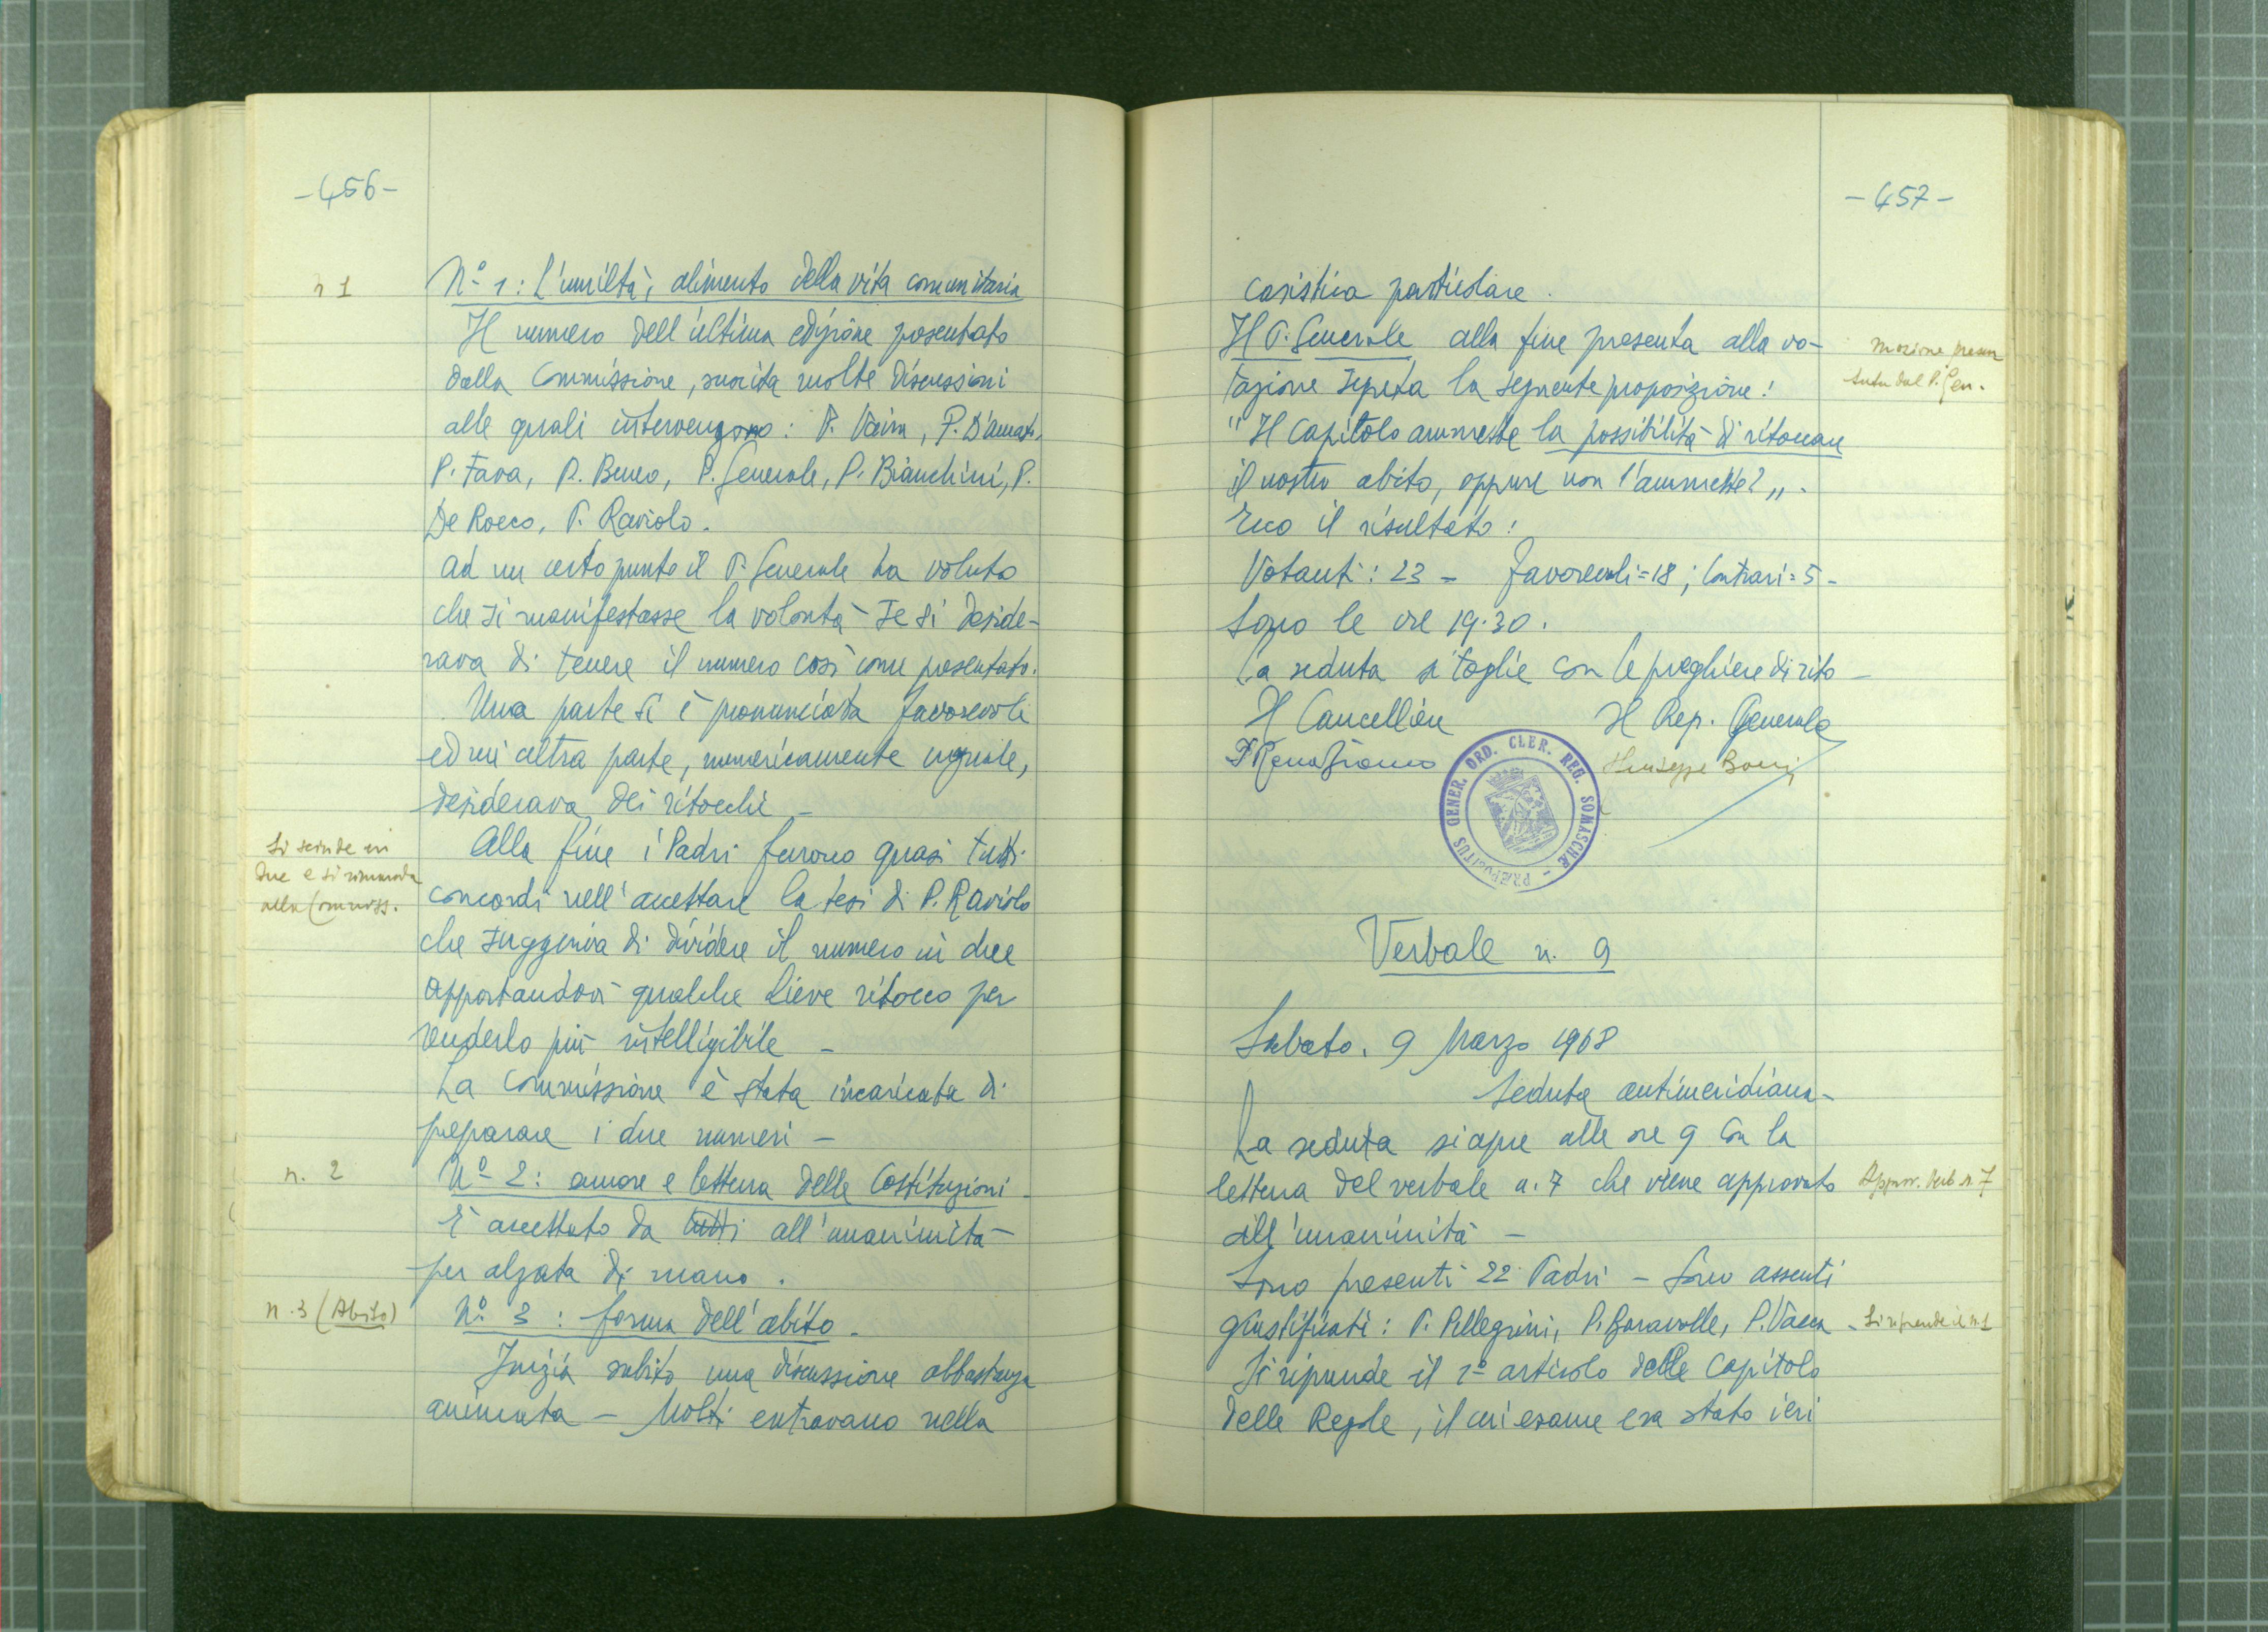 -456-
n 1
Nº 1: L'umiltà, alimento della vita comunitaria
Il numero dell'ultima edizione presentato
dalla Commissione, suscita molte discussioni
alle quali intervengono: P. Vaira, P. D'Amato,
P. Fava, P. Beneo, P. Generale, P. Bianchini, P.
De Rocco, P. Raviolo.
Ad un certo punto il P. Generale ha voluto
che si manifestasse la volontà se si deside-
rava di tenere il numero così come presentato.
Una parte si è pronunciata favorevole
ed un'altra parte, numericamente uguale,
desiderava dei ritocchi -
Si scinde in
due e si rimanda
alla Commiss.
Alla fine i Padri furono quasi tutti
concordi nell'accettare la tesi di P. Raviolo
che suggeriva di dividere il numero in due
apportandovi qualche lieve ritocco per
renderlo più intelligibile -
La Commissione è stata incaricata di
preparare i due numeri -
n. 2
Nº 2: amore e lettura delle Costituzioni -
È accettato da tutti all'unanimità
per alzata di mano.
n. 3 (Abito)
Nº 3: forma dell'abito -
Inizia subito una discussione abbastanza
animata - Molti entravano nella
-457-
casistica particolare.
Il P. Generale alla fine presenta alla vo-
tazione segreta la seguente proposizione:
mozione presen
tata dal P. Gen.
"Il Capitolo ammette la possibilità di ritoccare
il nostro abito, oppure non l'ammette?".
Ecco il risultato:
Votanti: 23 - favorevoli=18; Contrari=5-
Sono le ore 19.30.
La seduta si toglie con le preghiere di rito -
Il Cancelliere Il Rep. Generale
Giuseppe Boeri
PRÆPOSITUS GENER. ORD. CLER. REG. SOMASCHÆ
Verbale n. 9
Sabato, 9 Marzo 1968
Seduta antimeridiana-
La seduta si apre alle ore 9 con la
lettura del verbale n. 7 che viene approvato
Approv. Verb n. 7
all'unanimità -
Sono presenti 22 Padri - Sono assenti
giustificati: P. Pellegrini, P. Baravalle, P. Vacca -
Si riprende il n. 1
Si riprende il 1º articolo delle Capitolo
delle Regole, il cui esame era stato ieri